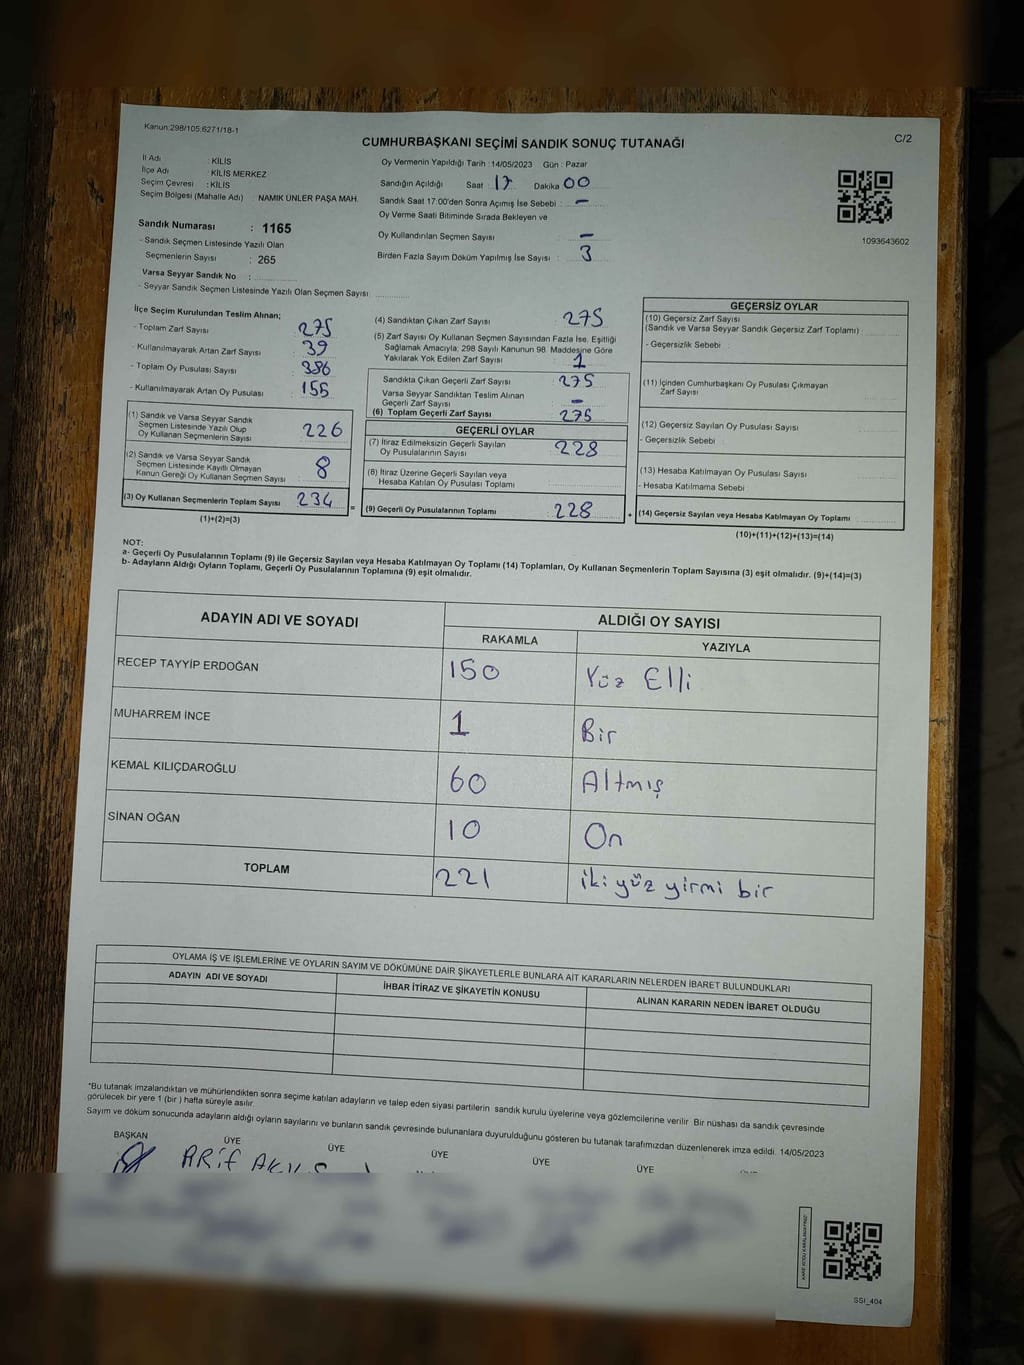 Kanun:298/105,6271/18-1
C/2
CUMHURBAŞKANI SEÇİMİ SANDIK SONUÇ TUTANAĞI
İl Adı : KİLİS
İlçe Adı : KİLİS MERKEZ
Seçim Çevresi : KİLİS
Seçim Bölgesi (Mahalle Adı) : NAMIK ÜNLER PAŞA MAH.
Sandık Numarası : 1165
- Sandık Seçmen Listesinde Yazılı Olan
Seçmenlerin Sayısı : 265
Varsa Seyyar Sandık No :
- Seyyar Sandık Seçmen Listesinde Yazılı Olan Seçmen Sayısı
Oy Vermenin Yapıldığı Tarih : 14/05/2023 Gün : Pazar
Sandığın Açıldığı Saat : 17 Dakika 00
Sandık Saat 17:00'den Sonra Açımış İse Sebebi : -
Oy Verme Saati Bitiminde Sırada Bekleyen ve
Oy Kullandırılan Seçmen Sayısı : -
Birden Fazla Sayım Döküm Yapılmış İse Sayısı : 3
1093643602
İlçe Seçim Kurulundan Teslim Alınan;
- Toplam Zarf Sayısı : 275
- Kullanılmayarak Artan Zarf Sayısı : 39
- Toplam Oy Pusulası Sayısı : 386
- Kullanılmayarak Artan Oy Pusulası : 155
(1) Sandık ve Varsa Seyyar Sandık
Seçmen Listesinde Yazılı Olup
Oy Kullanan Seçmenlerin Sayısı 226
(2) Sandık ve Varsa Seyyar Sandık
Seçmen Listesinde Kayıtlı Olmayan
Kanun Gereği Oy Kullanan Seçmen Sayısı 8
(3) Oy Kullanan Seçmenlerin Toplam Sayısı 234 =
(1)+(2)=(3)
(4) Sandıktan Çıkan Zarf Sayısı : 275
(5) Zarf Sayısı Oy Kullanan Seçmen Sayısından Fazla İse, Eşitliği
Sağlamak Amacıyla; 298 Sayılı Kanunun 98. Maddesine Göre
Yakılarak Yok Edilen Zarf Sayısı : 1
Sandıkta Çıkan Geçerli Zarf Sayısı : 275
Varsa Seyyar Sandıktan Teslim Alınan
Geçerli Zarf Sayısı : -
(6) Toplam Geçerli Zarf Sayısı : 275
GEÇERLİ OYLAR
(7) İtiraz Edilmeksizin Geçerli Sayılan
Oy Pusulalarının Sayısı : 228
(8) İtiraz Üzerine Geçerli Sayılan veya
Hesaba Katılan Oy Pusulası Toplamı :
(9) Geçerli Oy Pusulalarının Toplamı : 228 +
GEÇERSİZ OYLAR
(10) Geçersiz Zarf Sayısı
(Sandık ve Varsa Seyyar Sandık Geçersiz Zarf Toplamı) :
- Geçersizlik Sebebi :
(11) İçinden Cumhurbaşkanı Oy Pusulası Çıkmayan
Zarf Sayısı :
(12) Geçersiz Sayılan Oy Pusulası Sayısı :
- Geçersizlik Sebebi :
(13) Hesaba Katılmayan Oy Pusulası Sayısı :
- Hesaba Katılmama Sebebi :
(14) Geçersiz Sayılan veya Hesaba Katılmayan Oy Toplamı :
(10)+(11)+(12)+(13)=(14)
NOT:
a- Geçerli Oy Pusulalarının Toplamı (9) ile Geçersiz Sayılan veya Hesaba Katılmayan Oy Toplamı (14) Toplamları, Oy Kullanan Seçmenlerin Toplam Sayısına (3) eşit olmalıdır. (9)+(14)=(3)
b- Adayların Aldığı Oyların Toplamı, Geçerli Oy Pusulalarının Toplamına (9) eşit olmalıdır.
ADAYIN ADI VE SOYADI ALDIĞI OY SAYISI
RAKAMLA YAZIYLA
RECEP TAYYİP ERDOĞAN 150 Yüz Elli
MUHARREM İNCE 1 Bir
KEMAL KILIÇDAROĞLU 60 Altmış
SİNAN OĞAN 10 On
TOPLAM 221 iki yüz yirmi bir
OYLAMA İŞ VE İŞLEMLERİNE VE OYLARIN SAYIM VE DÖKÜMÜNE DAİR ŞİKAYETLERLE BUNLARA AİT KARARLARIN NELERDEN İBARET BULUNDUKLARI
ADAYIN ADI VE SOYADI İHBAR İTİRAZ VE ŞİKAYETİN KONUSU ALINAN KARARIN NEDEN İBARET OLDUĞU
*Bu tutanak imzalandıktan ve mühürlendikten sonra seçime katılan adayların ve talep eden siyasi partilerin sandık kurulu üyelerine veya gözlemcilerine verilir Bir nüshası da sandık çevresinde
görülecek bir yere 1 (bir ) hafta süreyle asılır.
Sayım ve döküm sonucunda adayların aldığı oyların sayılarını ve bunların sandık çevresinde bulunanlara duyurulduğunu gösteren bu tutanak tarafımızdan düzenlenerek imza edildi. 14/05/2023
BAŞKAN ÜYE ÜYE ÜYE ÜYE ÜYE
ARİF
SSI_404